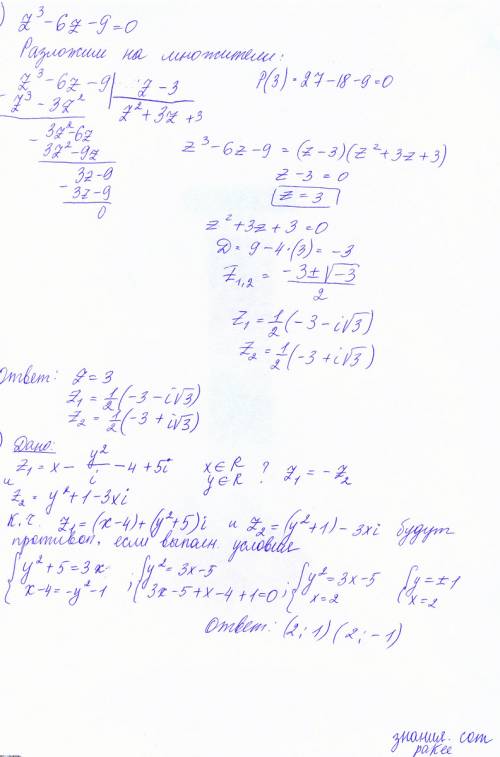 ) z³ - 6z - 9 = 0
Разложим на множители:
z³ - 6z - 9 | z - 3
P(3) = 27 - 18 - 9 = 0
- z³ - 3z²
z² + 3z + 3
3z² - 6z
- 3z² - 9z
3z - 9
- 3z - 9
0
z³ - 6z - 9 = (z - 3)(z² + 3z + 3)
z - 3 = 0
z = 3
z² + 3z + 3 = 0
D = 9 - 4·(3) = -3
z₁,₂ = (-3 ± √-3)/2
z₁ = 1/2 (-3 - i√3)
z₂ = 1/2 (-3 + i√3)
Ответ: z = 3
z₁ = 1/2 (-3 - i√3)
z₂ = 1/2 (-3 + i√3)
) Дано:
z₁ = x - y²/i - 4 + 5i x ∈ R y ∈ R ? z₁ = -z₂
и
z₂ = y² + 1 - 3xi
К.ч. z₁ = (x - 4) + (y² + 5)i и z₂ = (y² + 1) - 3xi будут
противоп, если выполн. условие
{ y² + 5 = 3x ; { y² = 3x - 5 ; { y² = 3x - 5 { y = ±1
x - 4 = -y² - 1 3x - 5 + x - 4 + 1 = 0 x = 2 x = 2
Ответ: (2; 1) (2; -1)
знания. com